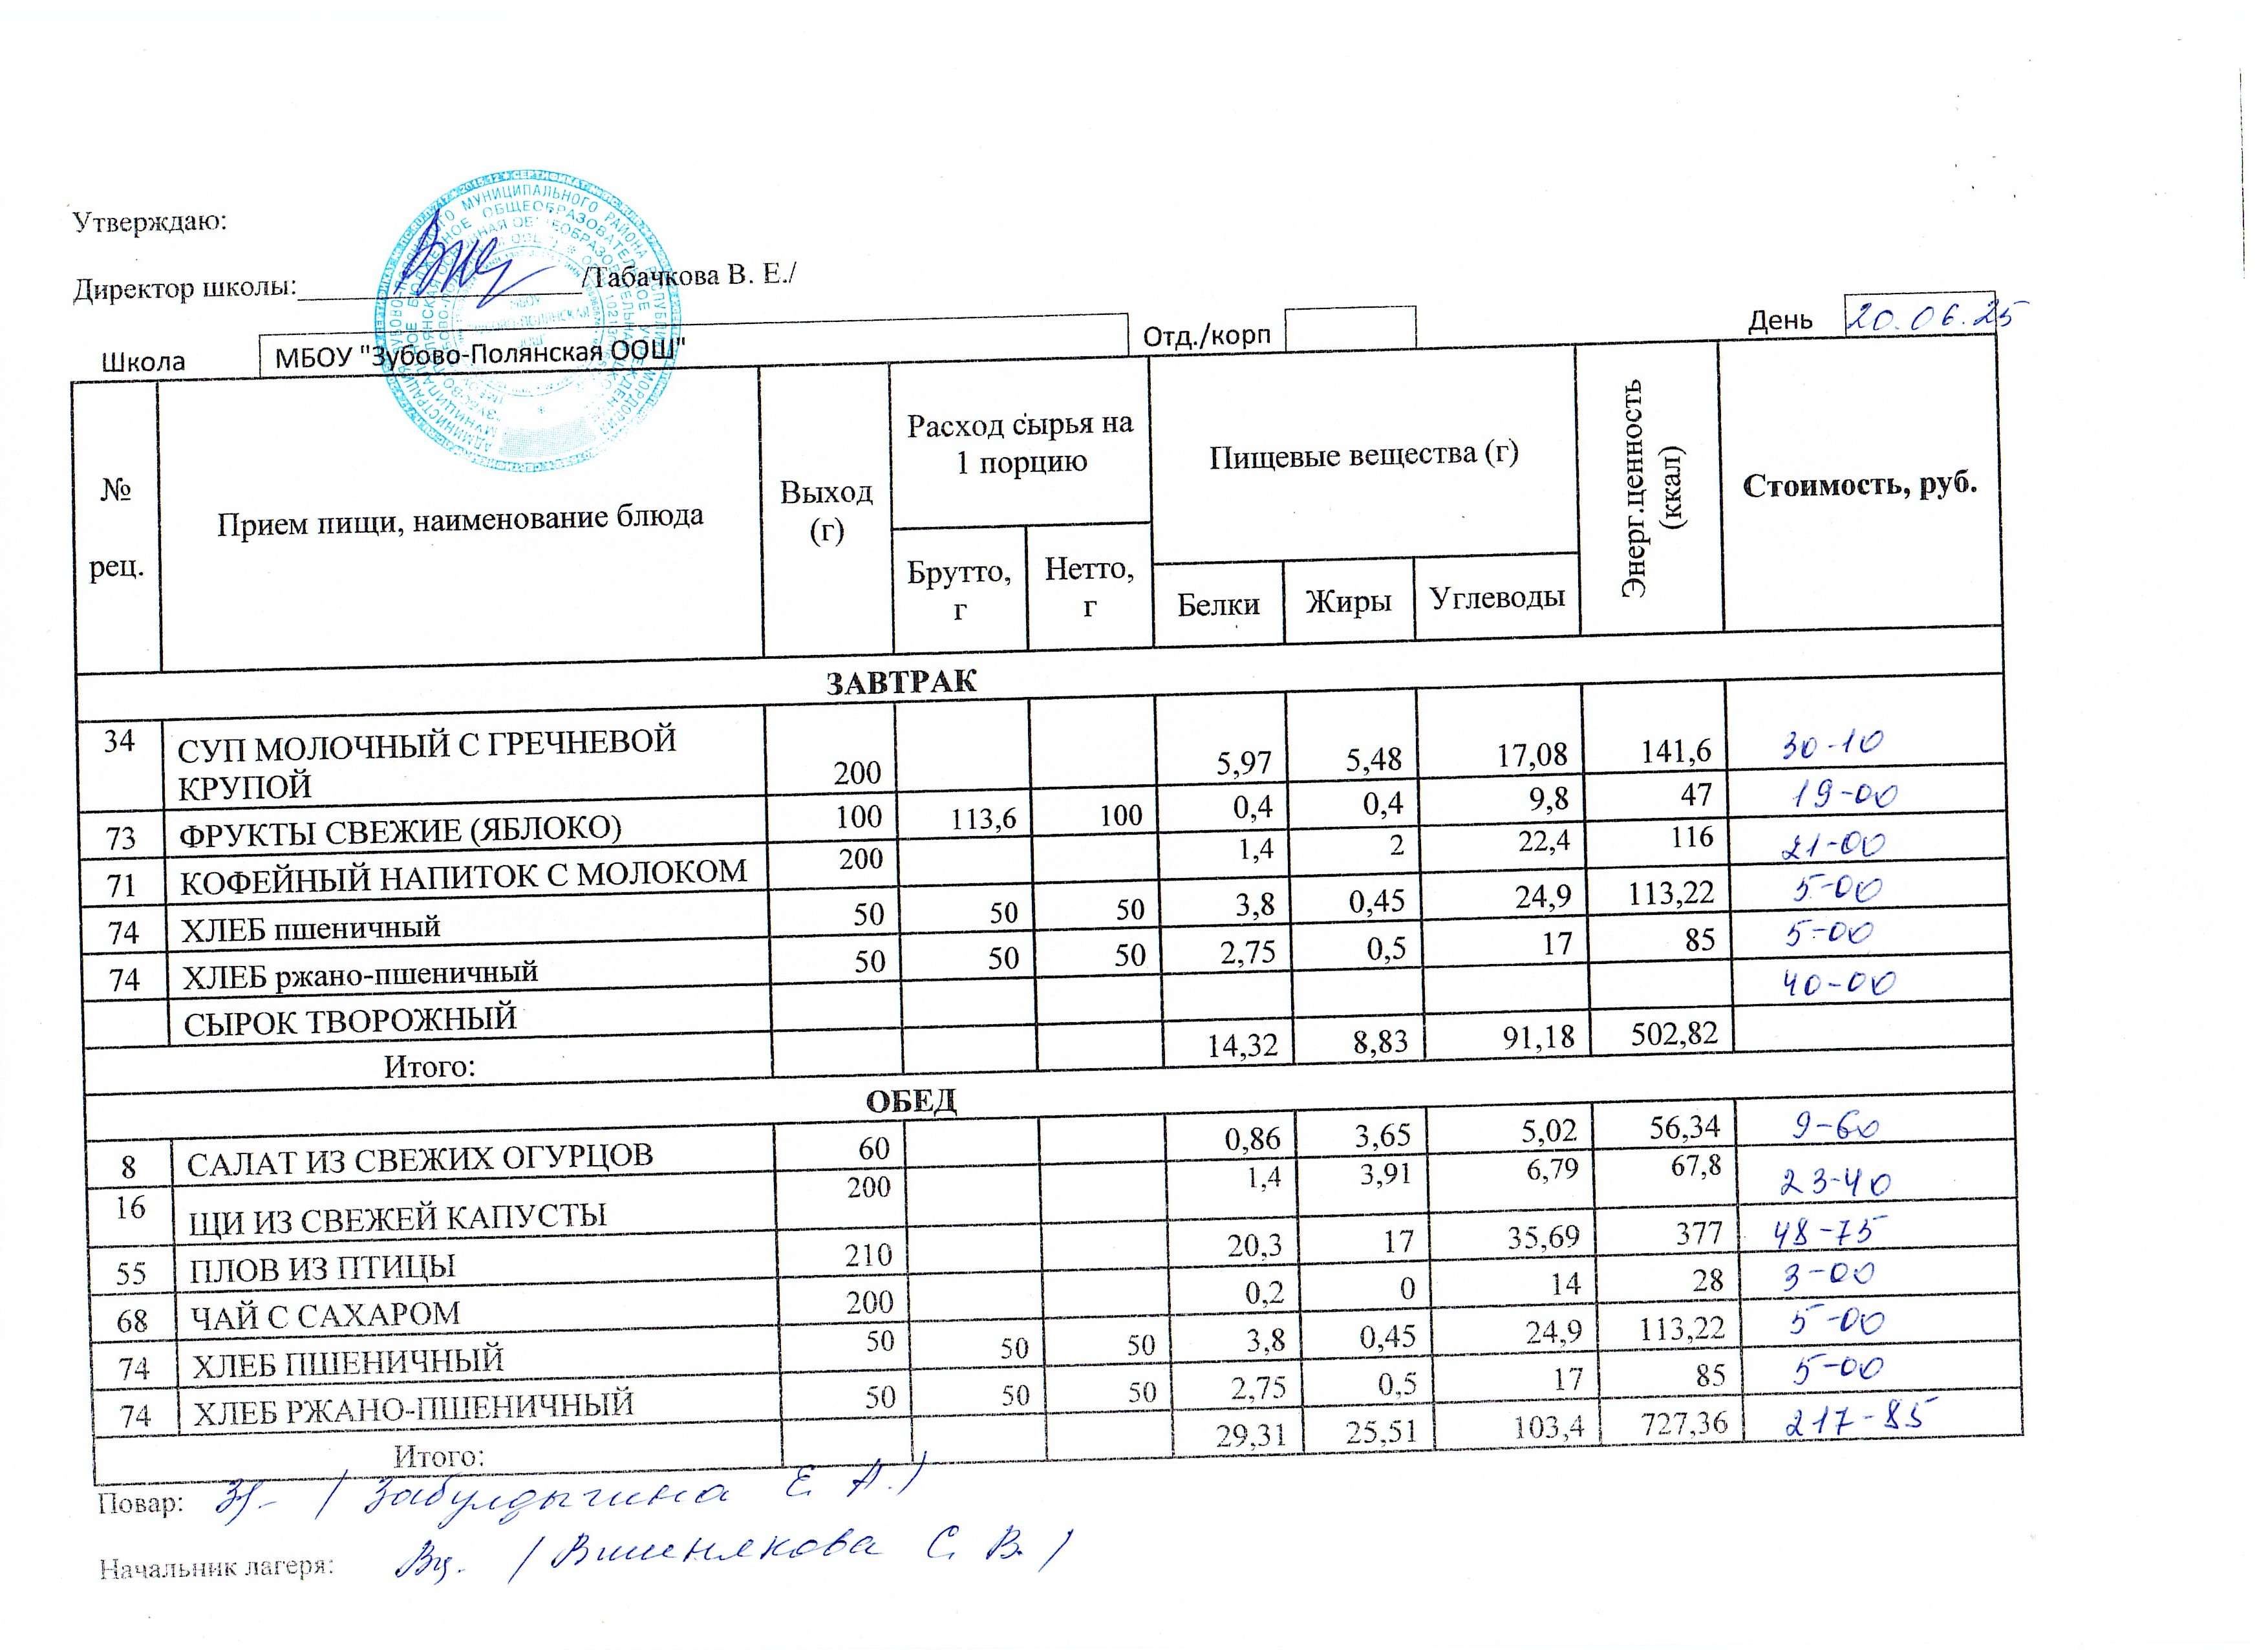 Утверждаю:
Директор школы: /Табачкова В. Е./
Школа МБОУ "Зубово-Полянская ООШ" Отд./корп День 20.06.25
№ рец. Прием пищи, наименование блюда Выход (г) Расход сырья на 1 порцию Пищевые вещества (г) Энерг.ценность (ккал) Стоимость, руб.
Брутто, г Нетто, г Белки Жиры Углеводы
ЗАВТРАК
34 СУП МОЛОЧНЫЙ С ГРЕЧНЕВОЙ КРУПОЙ 200 5,97 5,48 17,08 141,6 30-10
73 ФРУКТЫ СВЕЖИЕ (ЯБЛОКО) 100 113,6 100 0,4 0,4 9,8 47 19-00
71 КОФЕЙНЫЙ НАПИТОК С МОЛОКОМ 200 1,4 2 22,4 116 21-00
74 ХЛЕБ пшеничный 50 50 50 3,8 0,45 24,9 113,22 5-00
74 ХЛЕБ ржано-пшеничный 50 50 50 2,75 0,5 17 85 5-00
СЫРОК ТВОРОЖНЫЙ 40-00
Итого: 14,32 8,83 91,18 502,82
ОБЕД
8 САЛАТ ИЗ СВЕЖИХ ОГУРЦОВ 60 0,86 3,65 5,02 56,34 9-60
16 ЩИ ИЗ СВЕЖЕЙ КАПУСТЫ 200 1,4 3,91 6,79 67,8 23-40
55 ПЛОВ ИЗ ПТИЦЫ 210 20,3 17 35,69 377 48-75
68 ЧАЙ С САХАРОМ 200 0,2 0 14 28 3-00
74 ХЛЕБ ПШЕНИЧНЫЙ 50 50 50 3,8 0,45 24,9 113,22 5-00
74 ХЛЕБ РЖАНО-ПШЕНИЧНЫЙ 50 50 50 2,75 0,5 17 85 5-00
Итого: 29,31 25,51 103,4 727,36 217-85
Повар: / Забулдыгина Е. А. /
Начальник лагеря: / Вишнякова С. В. /